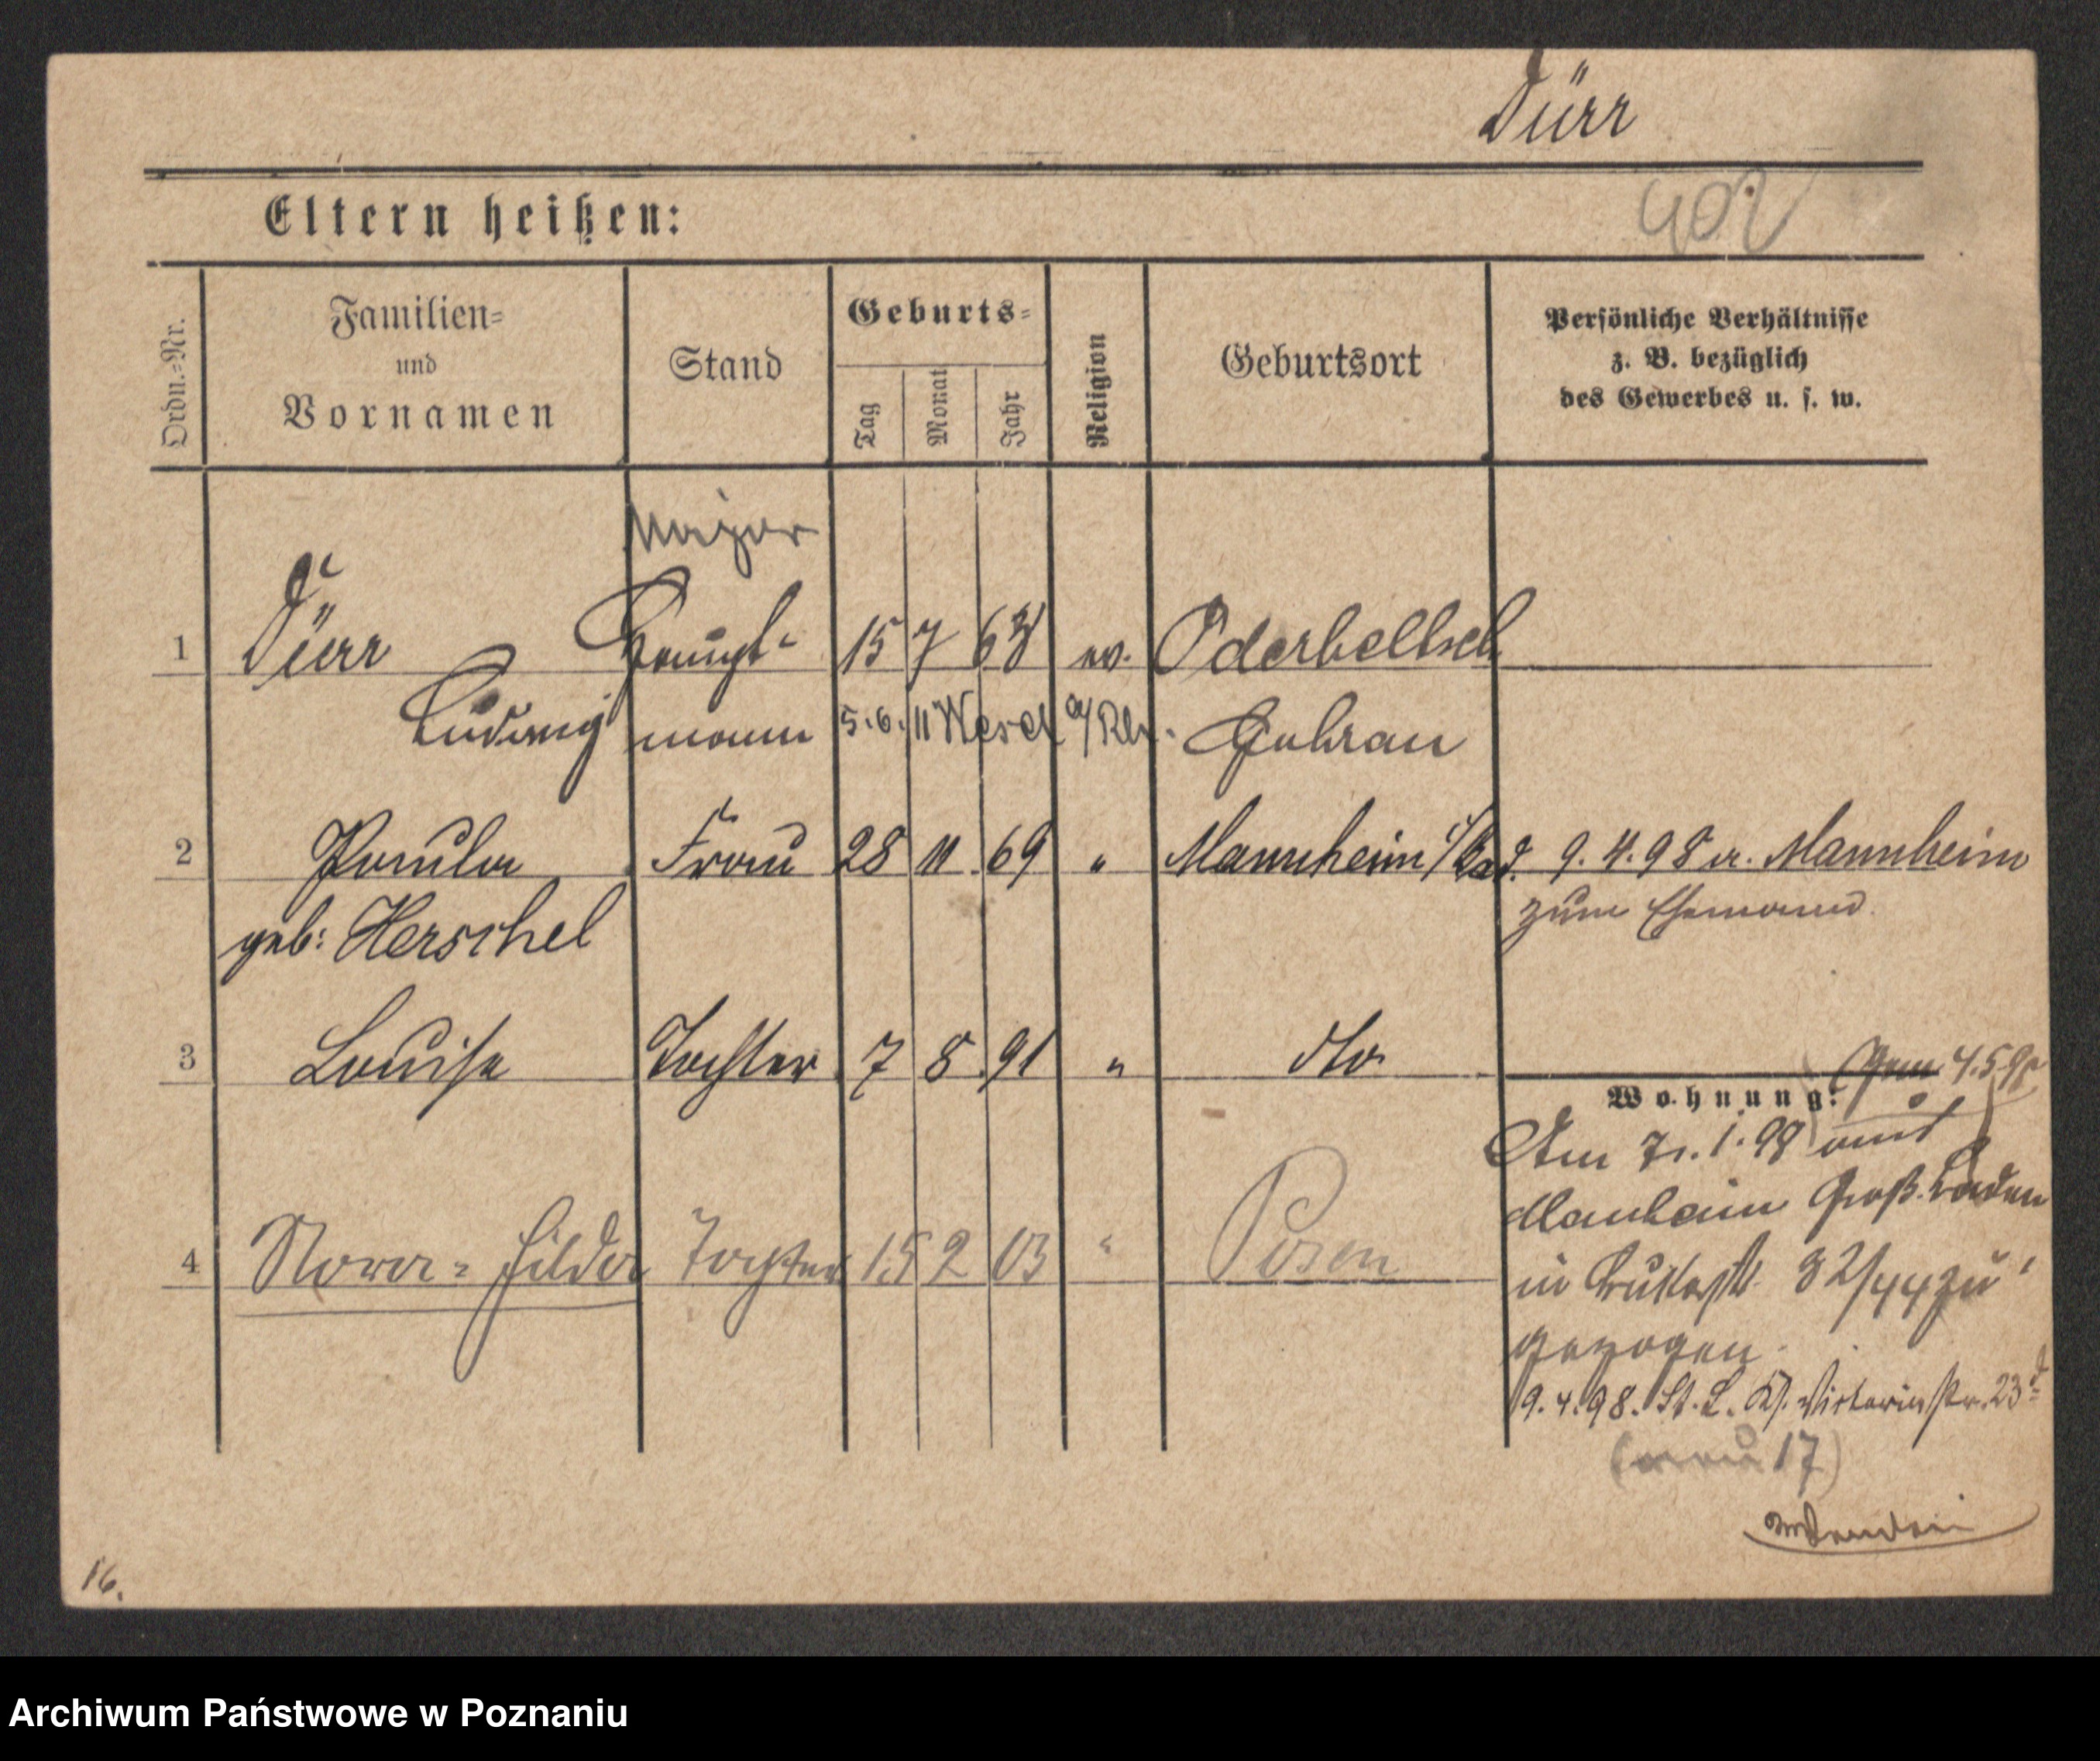 Dürr
Eltern heißen:
402
Ordn.=Nr.
Familien=
und
Vornamen
Stand
Geburts=
Tag
Monat
Jahr
Religion
Geburtsort
Persönliche Verhältnisse
z. B. bezüglich
des Gewerbes u. s. w.
Major
1 Dürr Haupt- 15 7 63 ev. Oderbeltsch
Ludwig mann 5.6.11 Wesel a/Rh. Guhrau
2 Paula Frau 28 11 69 " Mannheim i/Bad. 9.4.98 a. Mannheim
geb: Herschel zum Ehemann.
3 Louise Tochter 7 8 91 " dto
4.5.98
Wohnung:
Am 1.98 aus
Manheim Groß. Baden
4 Nora= Hilda Tochter 15 2 03 " Posen
in 82/44 zu
gezogen.
9.4.98. St. L. Victoriastr. 23
(neu 17)
16.
Archiwum Państwowe w Poznaniu